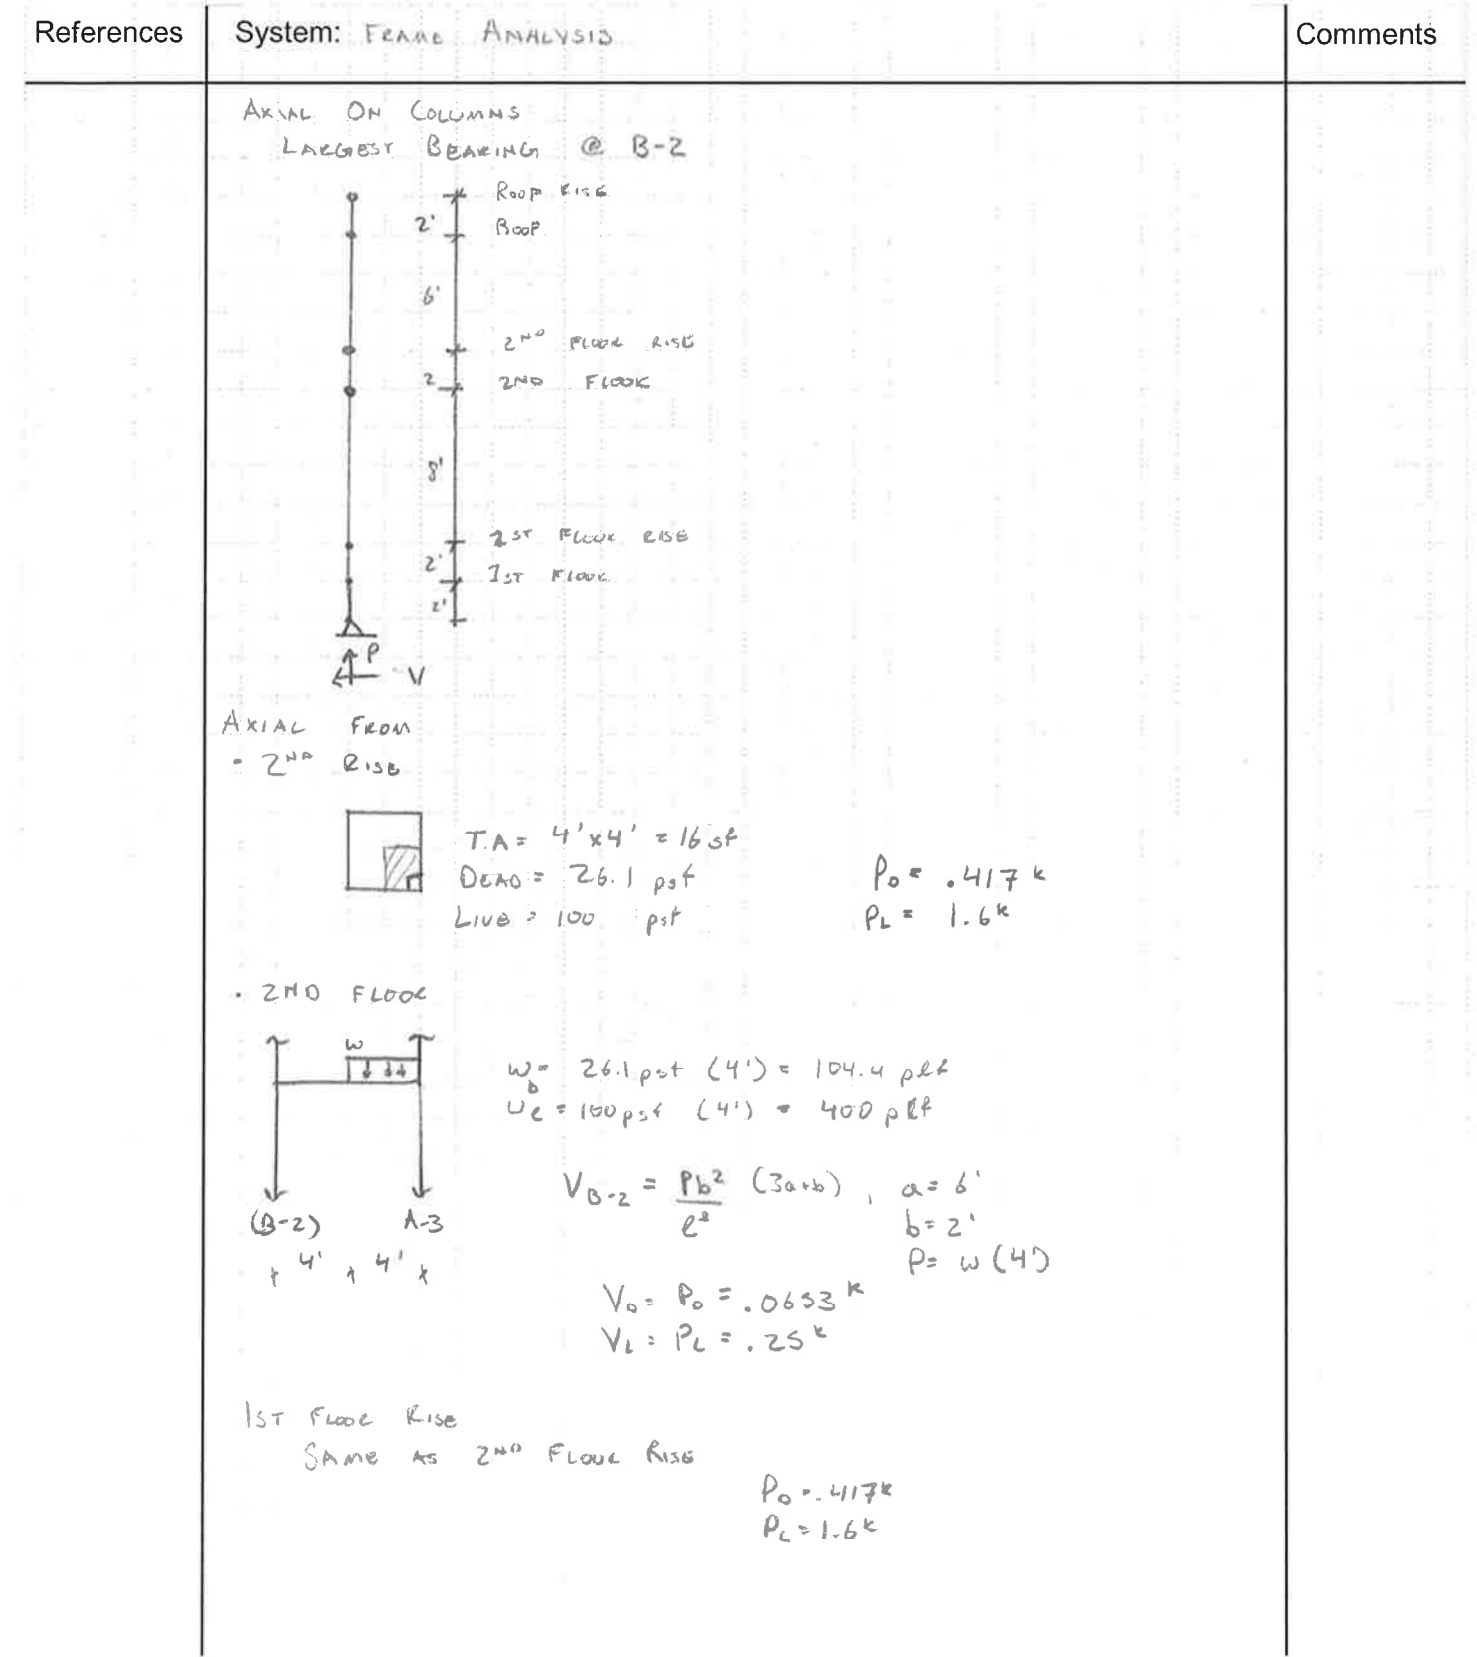 References
System: FRAME ANALYSIS
Comments
AXIAL ON COLUMNS
LARGEST BEARING @ B-2
ROOF RISE
2'
ROOF
6'
2ND FLOOR RISE
2
2ND FLOOR
8'
2ST FLOOR RISE
2'
1ST FLOOR
2'
P
V
AXIAL FROM
• 2ND RISE
T.A = 4'x4' = 16 sf
DEAD = 26.1 psf
LIVE = 100 psf
PD = .417 k
PL = 1.6k
• 2ND FLOOR
w
wD = 26.1 psf (4') = 104.4 plf
wL = 100 psf (4') = 400 plf
VB-2 = Pb² (3a+b) , a = 6'
ℓ³
b = 2'
P = w (4')
(B-2) A-3
4' 4'
VD = PD = .0653 k
VL = PL = .25 k
1ST FLOOR RISE
SAME AS 2ND FLOOR RISE
PD = .417k
PL = 1.6k